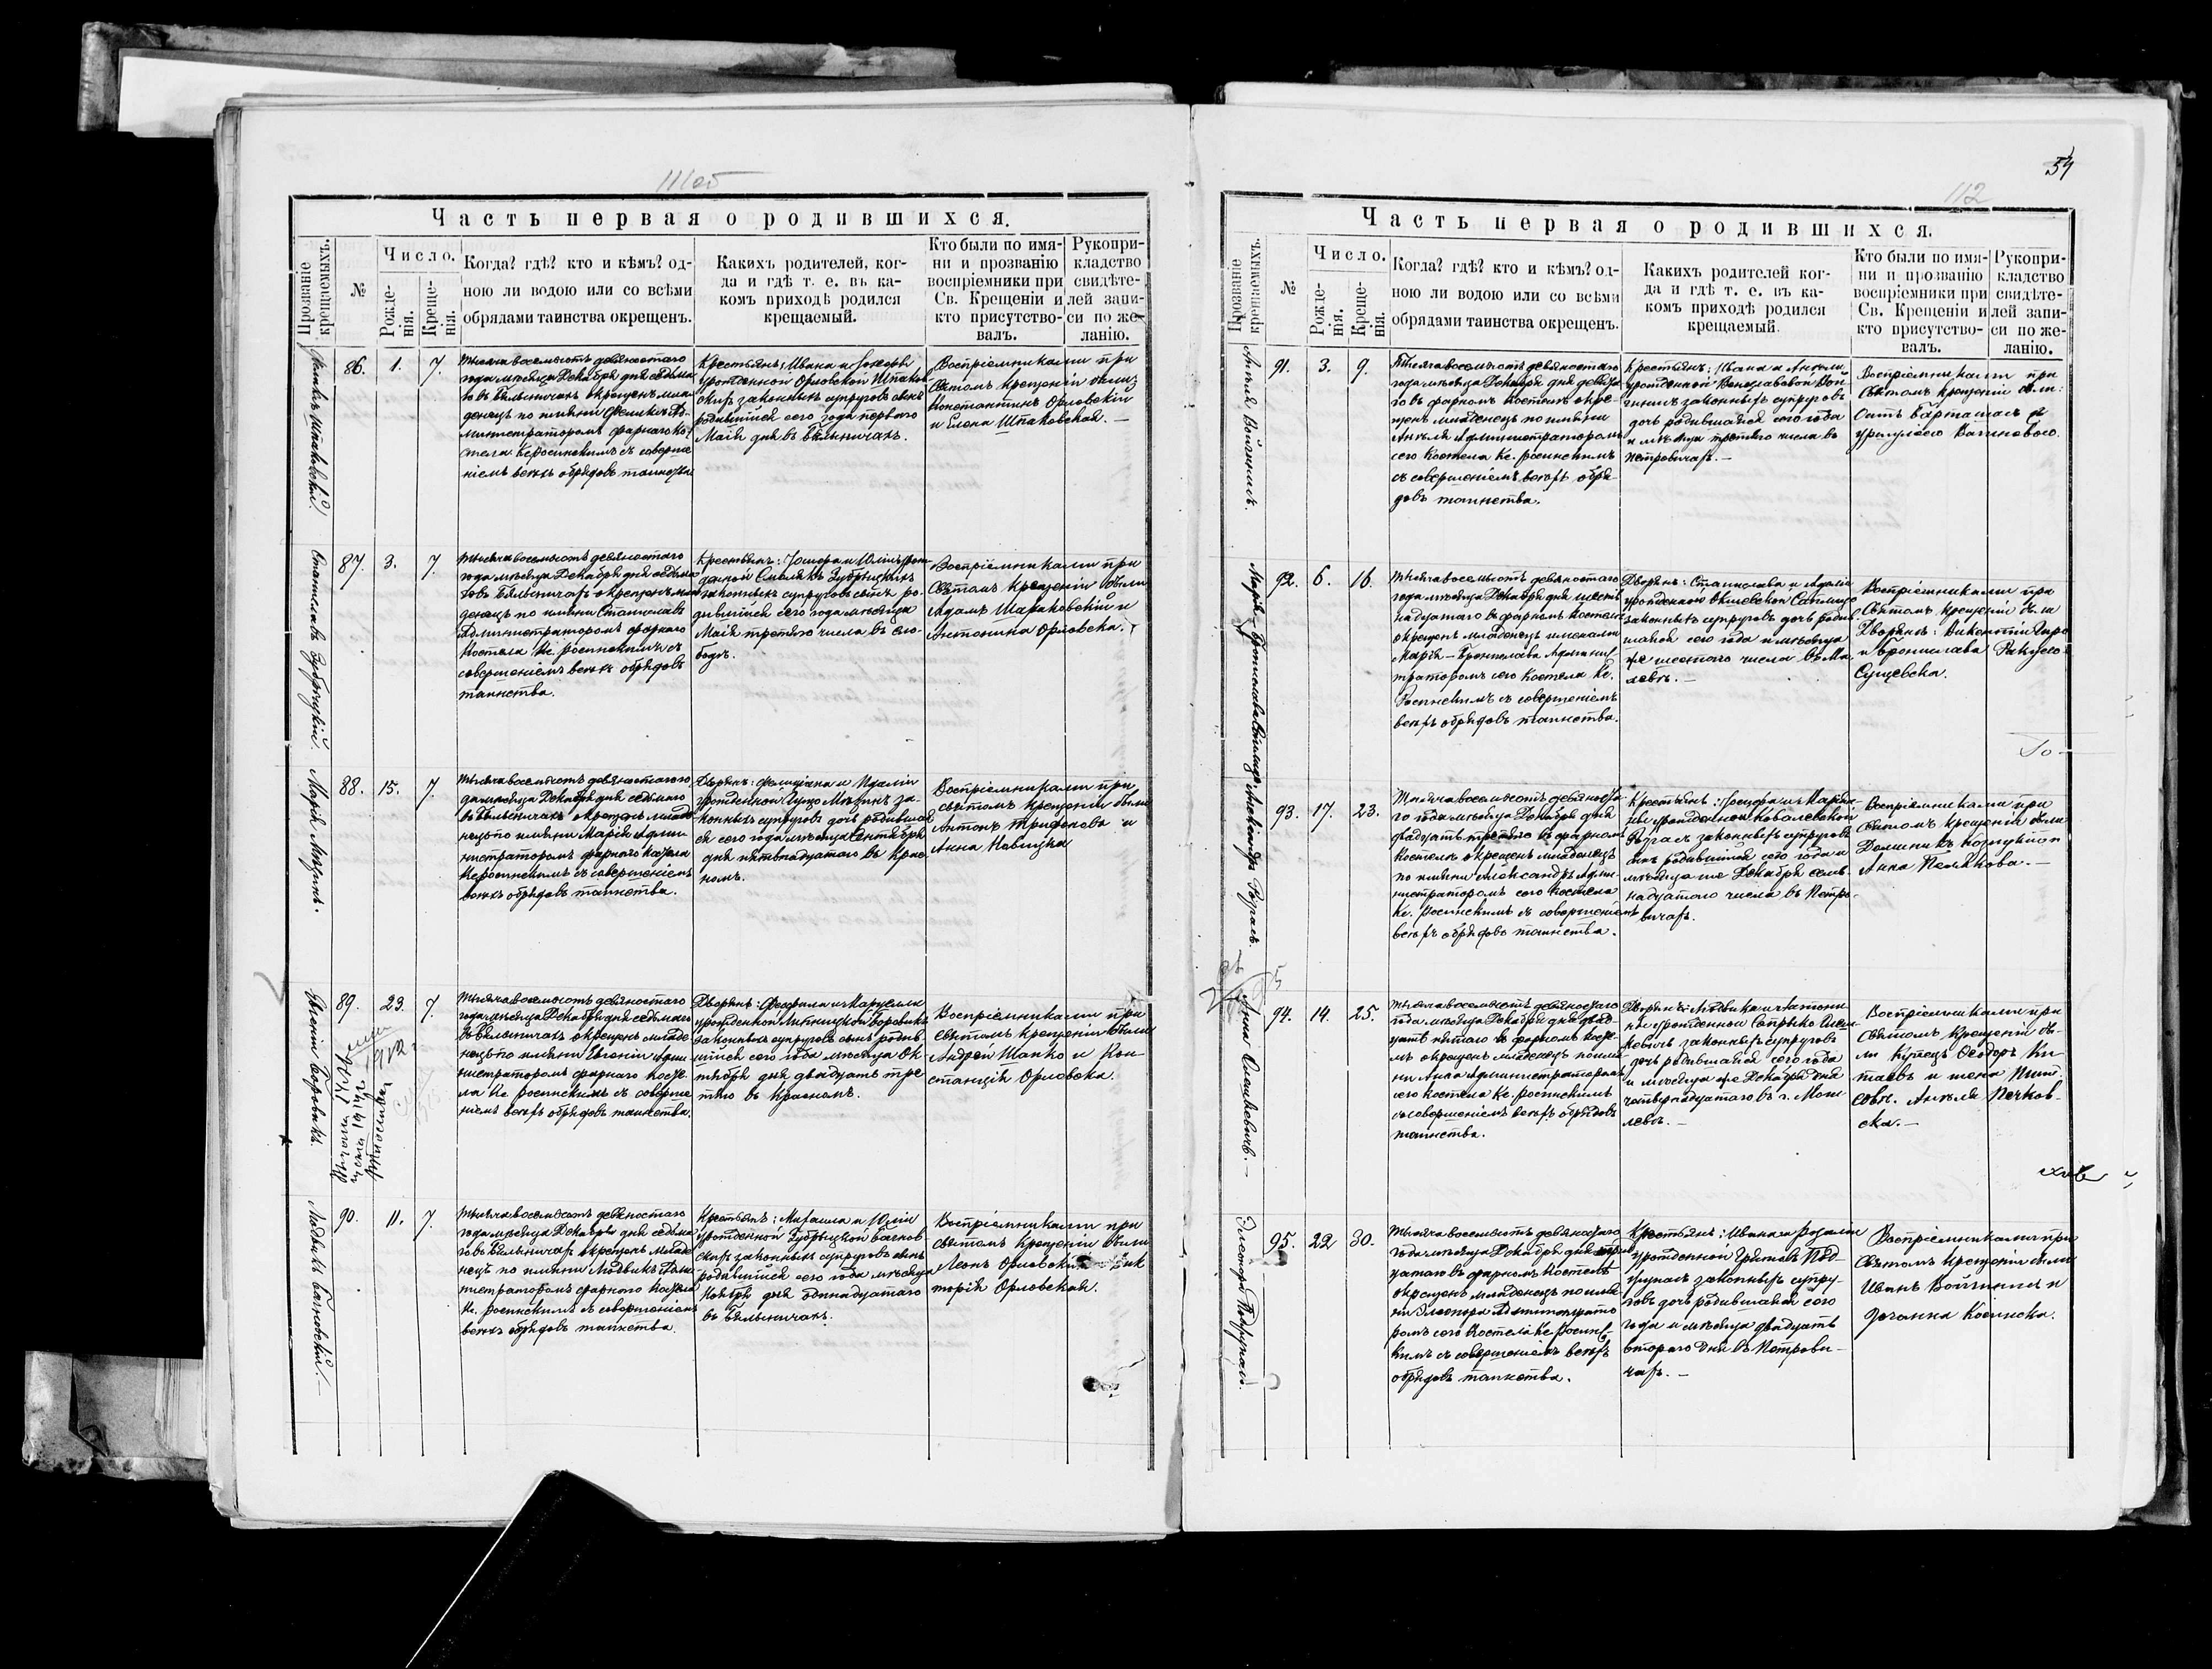 111об
Часть первая о родившихся.
Прозваніе крещаемыхъ.
№
Число.
Рожде-
нія.
Креще-
нія.
Когда? гдѣ? кто и кѣмъ? од-
ною ли водою или со всѣми
обрядами таинства окрещенъ.
Какихъ родителей, ког-
да и гдѣ т. е. въ ка-
комъ приходѣ родился
крещаемый.
Кто были по имя-
ни и прозванію
воспріемники при
Св. Крещеніи и
кто присутство-
валъ.
Рукопри-
кладство
свидѣте-
лей запи-
си по же-
ланію.
Феликсъ Шпаковскій
86. 1. 7.
Тысяча восемьсотъ девяностаго
года мѣсяца Декабря дня седьма
го въ Бялыничахъ окрещенъ мла
денецъ по имяни Феликсъ Ад-
министраторомъ фарнаго Ко-
стела Кс. Росинскимъ съ соверше
ніемъ всѣхъ обрядовъ таинства
Крестьянъ: Ивана и
урожденной Орловской Шпаков
скихъ законныхъ супруговъ сынъ
родившійся сего года перваго
Мая дня въ Бялыничахъ.
Воспріемниками при
Святомъ Крещеніи были:
Константинъ Орловскій
и Елена Шпаковская. —
Станиславъ Зубрицкій.
87. 3. 7.
Тысяча восемьсотъ девяностаго
года мѣсяца Декабря дня седьма
го въ Бялыничахъ окрещенъ мла
денецъ по имяни Станиславъ
Администраторомъ фарнаго
Костела Кс. Росинскимъ съ
совершеніемъ всѣхъ обрядовъ
таинства.
Крестьянъ: Іосифа и Юліи урож-
денной Смолякъ Зубрицкихъ
законныхъ супруговъ сынъ ро-
дившійся сего года мѣсяца
Мая третяго числа въ Сло-
бодѣ.
Воспріемниками при
Святомъ Крещеніи были
Адамъ Шараковскій и
Антонина Орловска.
Марія Мѣзинъ.
88. 15. 7.
Тысяча восемьсотъ девяностаго го
да мѣсяца Декабря дня седьмаго
въ Бялыничахъ окрещенъ младе
нецъ по имяни Марія Адми
нистраторомъ фарнаго Костела
Кс. Росинскимъ съ совершеніемъ
всѣхъ обрядовъ таинства.
Дворянъ: Фелиціана и Идаліи
урожденной Гуцо Мѣзинъ за-
конныхъ супруговъ дочь родивша
яся сего года мѣсяца Сентября
дня пятнадцатаго въ Крас
номъ.
Воспріемниками при
святомъ Крещеніи были
Антонъ Трифонова и
Анна Новицка
Евгеній Боровикъ.
89. 23. 7.
Тысяча восемьсотъ девяностаго
года мѣсяца Декабря дня седьмаго
въ Бялыничахъ окрещенъ младе
нецъ по имяни Евгеній Адми
нистраторомъ фарнаго Косте
ла Кс. Росинскимъ съ соверше
ніемъ всѣхъ обрядовъ таинства.
Дворянъ: Феофила и Марцелли
урожденной Липницкой Боровикъ
законныхъ супруговъ сынъ родив
шійся сего года мѣсяца Ок
тября дня двадцать тре
тяго въ Красномъ.
Воспріемниками при
святомъ Крещеніи были
Андрей Шапко и Кон-
станція Орловска.
Людвикъ Бачновскій. —
90. 11. 7.
Тысяча восемьсотъ девяностаго
года мѣсяца Декабря дня седьма
го въ Бялыничахъ окрещенъ младе
нецъ по имяни Людвикъ Адми
нистраторомъ фарнаго Костела
Кс. Росинскимъ съ совершеніемъ
всѣхъ обрядовъ таинства.
Крестьянъ: Михаила и Юліи
урожденной Зубрицкой Бачнов-
скихъ законныхъ супруговъ сынъ
родившійся сего года мѣсяца
Ноября дня одиннадцатаго
въ Бялыничахъ.
Воспріемниками при
святомъ Крещеніи были
Леонъ Орловскій Вик
торія Орловская.
54
112
Часть первая о родившихся.
Прозваніе крещаемыхъ.
№
Число.
Рожде-
нія.
Креще-
нія.
Когда? гдѣ? кто и кѣмъ? од-
ною ли водою или со всѣми
обрядами таинства окрещенъ.
Какихъ родителей ког-
да и гдѣ т. е. въ ка-
комъ приходѣ родился
крещаемый.
Кто были по имя-
ни и прозванію
воспріемники при
Св. Крещеніи и
кто присутство-
валъ.
Рукопри-
кладство
свидѣте-
лей запи-
си по же-
ланію.
Анѣля Войгинисъ.
91. 3. 9.
Тысяча восемьсотъ девяностаго
года мѣсяца Декабря дня девята
го въ фарномъ Костелѣ окре-
щенъ младенецъ по имяни
Анѣля Администраторомъ
сего Костела Кс. Росинскимъ
съ совершеніемъ всѣхъ обря-
довъ таинства.
Крестьянъ: Ивана и Анѣли
урожденной Вой-
гинисъ законныхъ супруговъ
дочь родившаяся сего года
и мѣсяца третяго числа въ
Петровичахъ. —
Воспріемниками при
Святомъ Крещеніи были:
Бартошасъ и
92. 6. 16.
Тысяча восемьсотъ девяностаго
года мѣсяца Декабря дня шест
надцатаго въ фарномъ Костелѣ
окрещенъ младенецъ именами
Марія – Бронислава Админис
траторомъ сего Костела Кс.
Росинскимъ съ совершеніемъ
всѣхъ обрядовъ таинства.
Дворянъ: Станислава и Адели
урожденной Сапицо
законныхъ супруговъ дочь родив-
шаяся сего года и мѣсяца
же шестаго числа въ Мо
левѣ. —
Воспріемниками при
Святомъ Крещеніи были
Дворянъ: Викентій
и Бронислава
Сущевска.
Александръ Ругась.
93. 17. 23.
Тысяча восемьсотъ девяноста
го года мѣсяца Декабря дня
двадцать третяго въ фарномъ
Костелѣ окрещенъ младенецъ
по имяни Александръ Адми-
нистраторомъ сего Костела
Кс. Росинскимъ съ совершеніемъ
всѣхъ обрядовъ таинства.
Крестьянъ: Іосифа и Маріан-
ны урожденной Ковалевской
Ругась законныхъ супруговъ
сынъ родившійся сего года и
мѣсяца же Декабря сем-
надцатаго числа въ Петро-
вичахъ.
Воспріемниками при
Святомъ Крещеніи были
Доминикъ и
Анна —
94. 14. 25.
Тысяча восемьсотъ девяностаго
года мѣсяца Декабря дня двад
цать пятаго въ фарномъ Косте-
лѣ окрещенъ младенецъ по имя
ни Анна Администраторомъ
сего Костела Кс. Росинскимъ
съ совершеніемъ всѣхъ обрядовъ
таинства.
Дворянъ: Людвика и Антони-
ны урожденной
законныхъ супруговъ
дочь родившаяся сего года
и мѣсяца же Декабря дня
четырнадцатаго въ г. Моги
левѣ. —
Воспріемниками при
Святомъ Крещеніи бы-
ли Купецъ Ѳеодоръ Ки-
таевъ и жена Тит.
Совѣт. Анѣля Печков-
ска. —
Элеонора Подгунасъ.
95. 22 30.
Тысяча восемьсотъ девяностаго
года мѣсяца Декабря дня трид
цатаго въ фарномъ Костелѣ
окрещенъ младенецъ по имя
ни Элеонора Администрато
ромъ сего Костела Кс. Росинс
кимъ съ совершеніемъ всѣхъ
обрядовъ таинства.
Крестьянъ: Ивана и Розаліи
урожденной Под-
гунасъ законныхъ супру-
говъ дочь родившаяся сего
года и мѣсяца двадцать
втораго дня въ Петрови-
чахъ. —
Воспріемниками при
Святомъ Крещеніи были
Иванъ Войгинисъ и
Косинска.